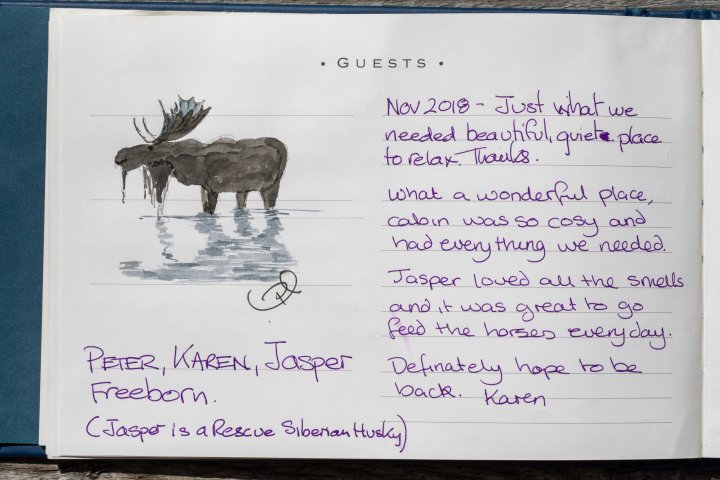 • GUESTS •
Nov 2018 - Just what we
needed beautiful, quiet place
to relax. Thanks.
What a wonderful place,
cabin was so cosy and
had everything we needed.
Jasper loved all the smells
and it was great to go
feed the horses everyday.
Definately hope to be
back. Karen
PETER, KAREN, Jasper
Freeborn.
(Jasper is a Rescue Siberian Husky)